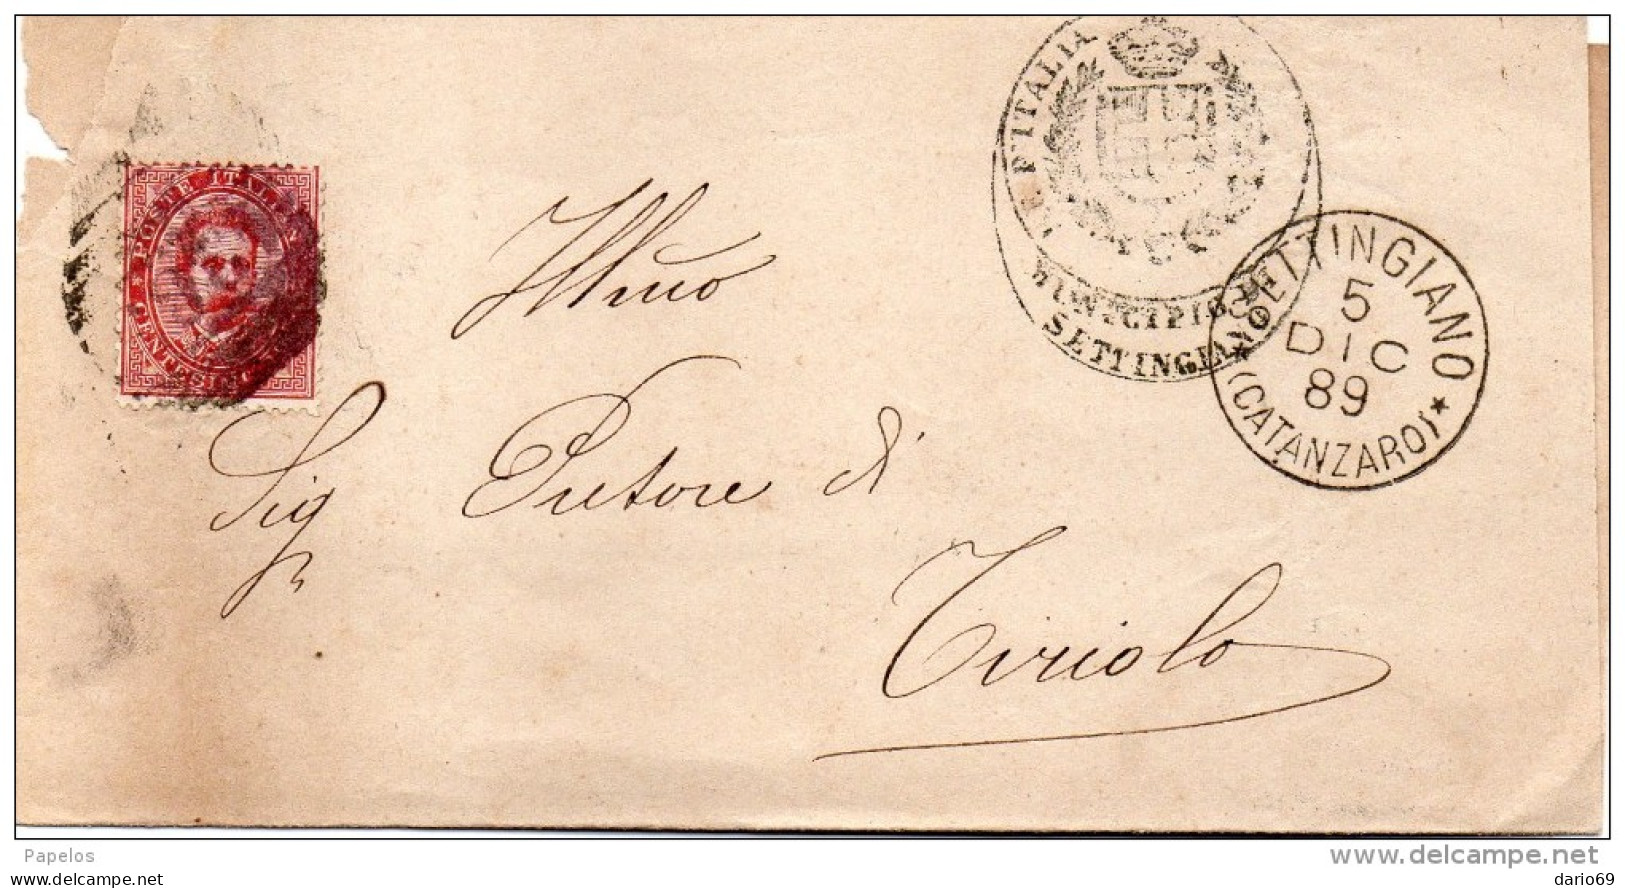 POSTE ITALIANE
D'ITALIA
MUNICIPIO DI
SETTINGIANO
SETTINGIANO
5
DIC
89
(CATANZARO)
Illmo
Sig Pretore di
Tiriolo
Papelos
www.delcampe.net
dario69